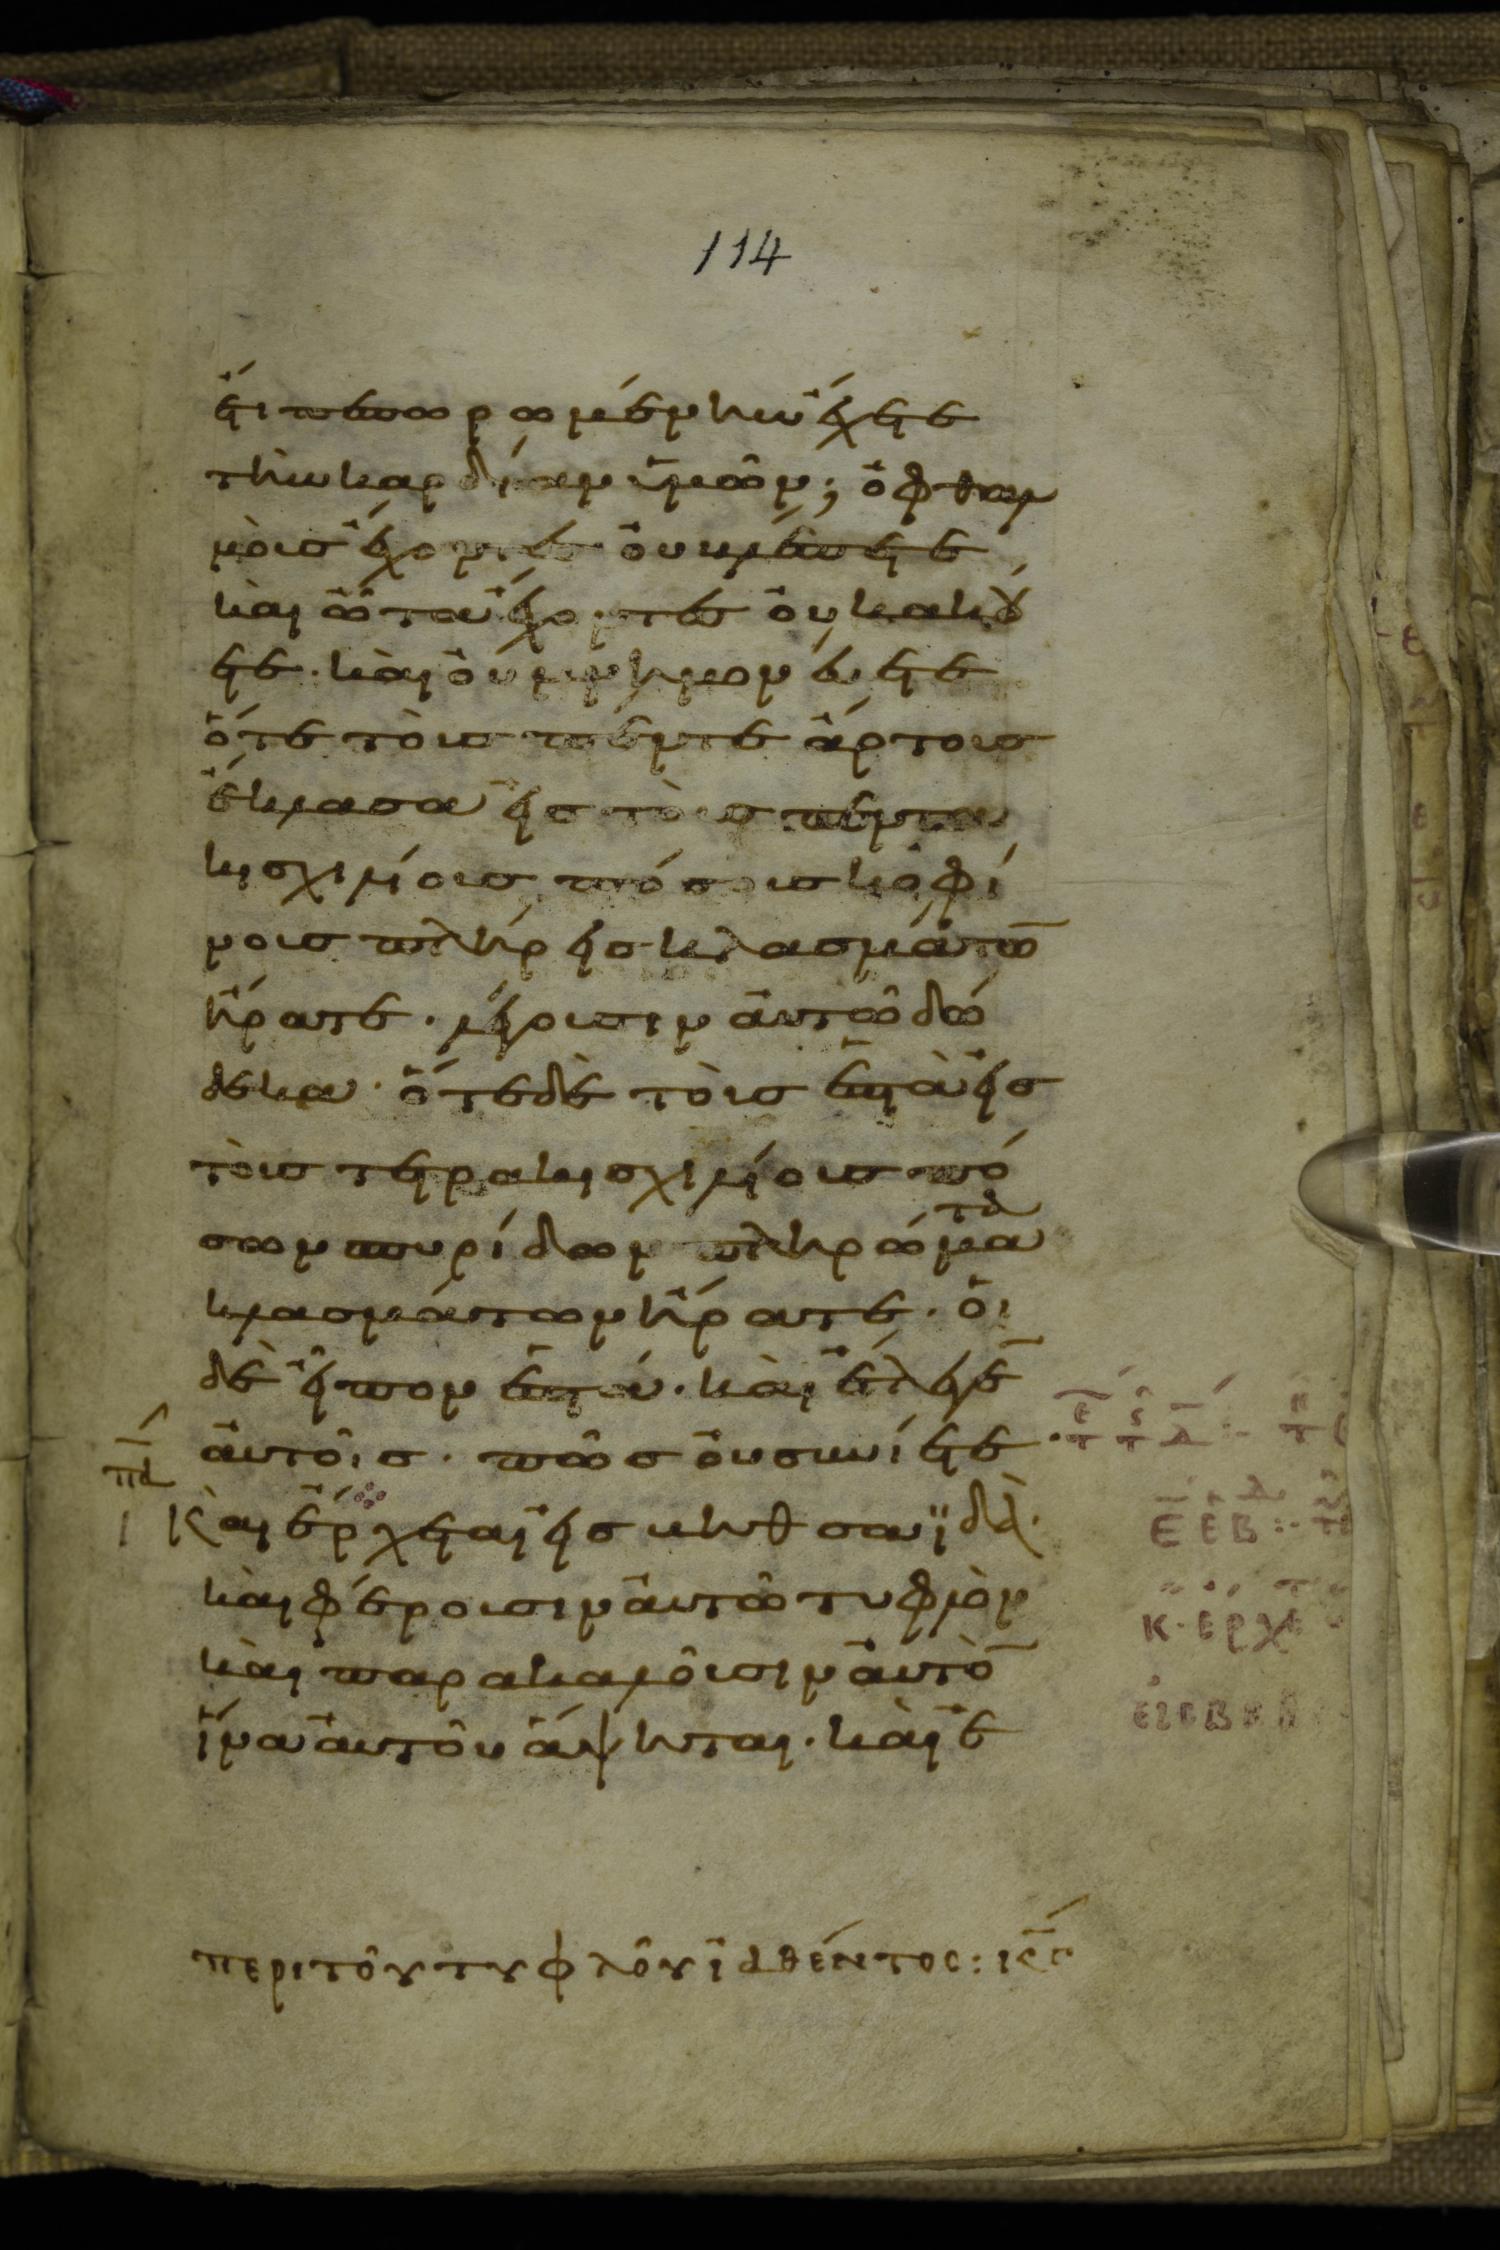 114
ἔτι πεπωρωμένην ἔχετε
τὴν καρδίαν ὑμῶν; ὀφθαλ
μοὺς ἔχοντες οὐ βλέπετε
καὶ ὦτα ἔχοντες οὐκ ἀκού
ετε· καὶ οὐ μνημονεύετε
ὅτε τοὺς πέντε ἄρτους
ἔκλασα εἰς τοὺς πεντα
κισχιλίους πόσους κοφί
νους πλήρεις κλασμάτω̄
ἤρατε· λέγουσιν αὐτῶ δώ
δεκα· ὅτε δὲ τοὺς ἑπτὰ εἰς
τοὺς τετρακισχιλίους πό
σων σπυρίδων πληρώματα
κλασμάτων ἤρατε· οἱ
δὲ εἶπον ἑπτά· καὶ ἔλεγε̄
αὐτοῖς· πῶς οὐ συνίετε·
πδ
Καὶ ἔρχεται εἰς βηθσαϊδά·
καὶ φέρουσιν αὐτῶ τυφλὸν
καὶ παρακαλοῦσιν αὐτὸ̄
ἵνα αὐτοῦ ἅψηται· καὶ ἐ
περι τοῦ τυφλοῦ ἰαθέντος: